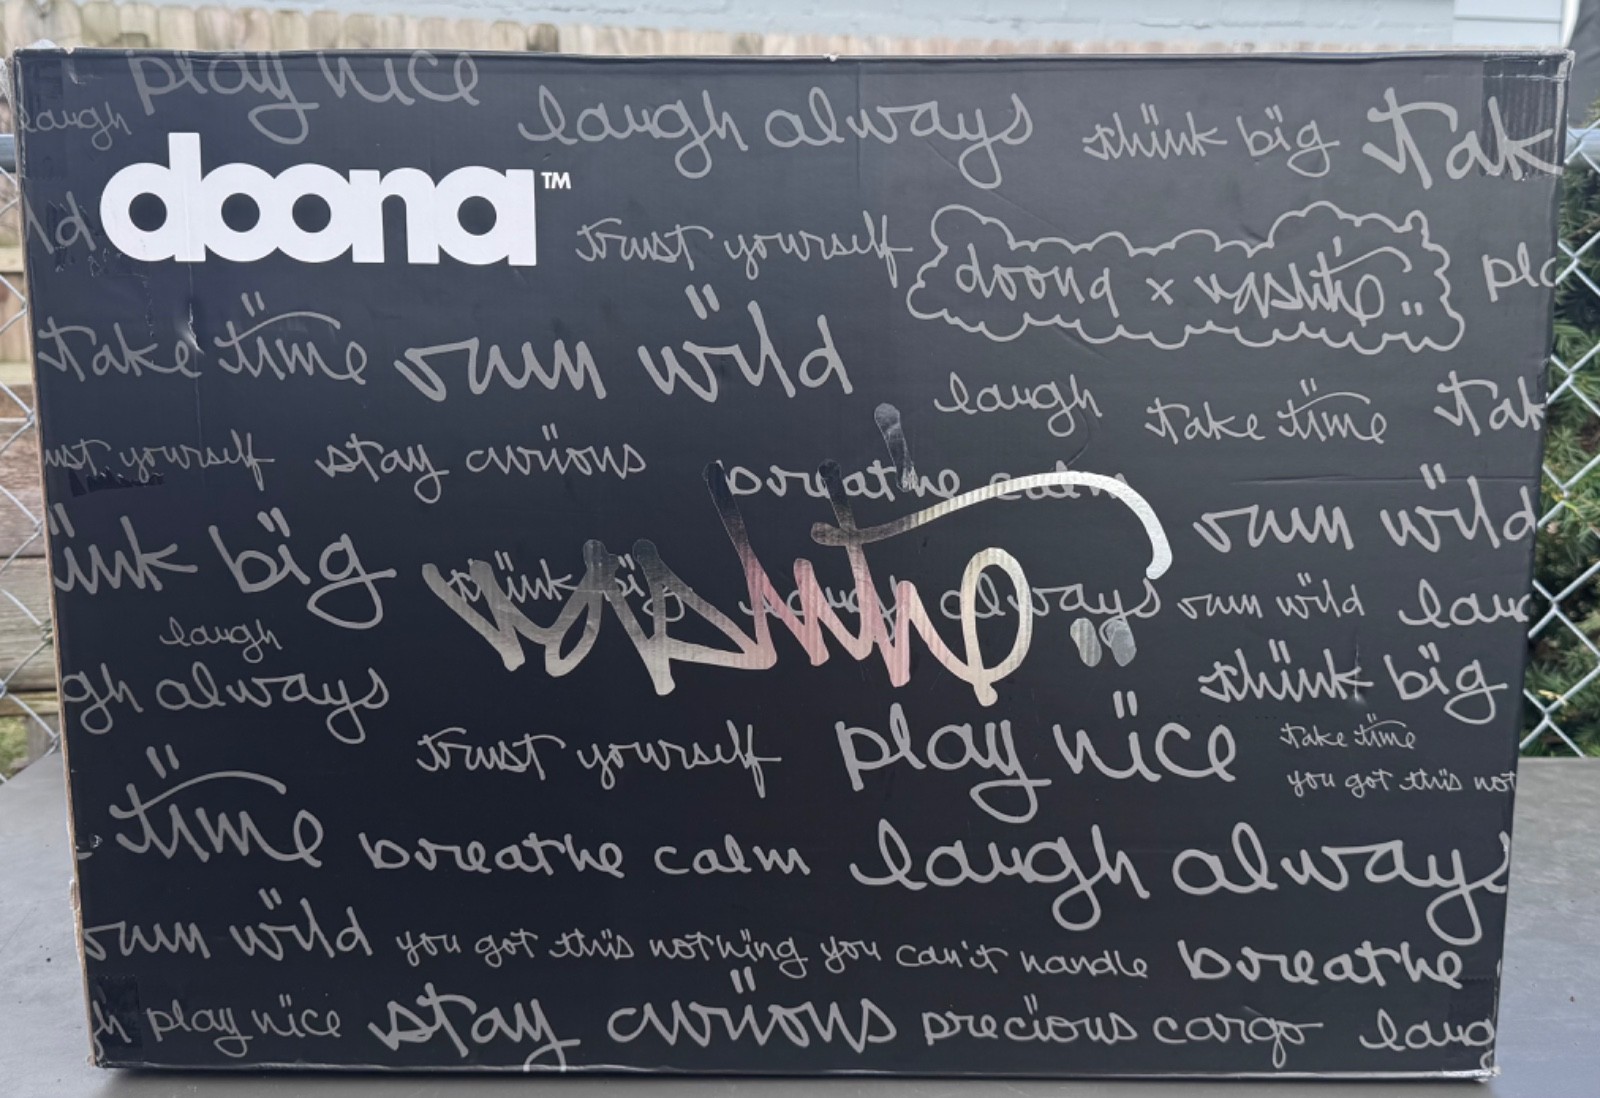 play nice
laugh
laugh always
think big
Tak
doona™
ld
trust yourself
doona x vashtie
pla
take time
run wild
laugh
take time
tak
ust yourself
stay curious
breathe calm
run wild
ink big
think big
laugh always
vashtie
run wild
laug
laugh
gh always
think big
trust yourself
play nice
take time
you got this not
time
breathe calm
laugh always
run wild
you got this nothing you can't handle
breathe
h
play nice
stay curious
precious cargo
laug